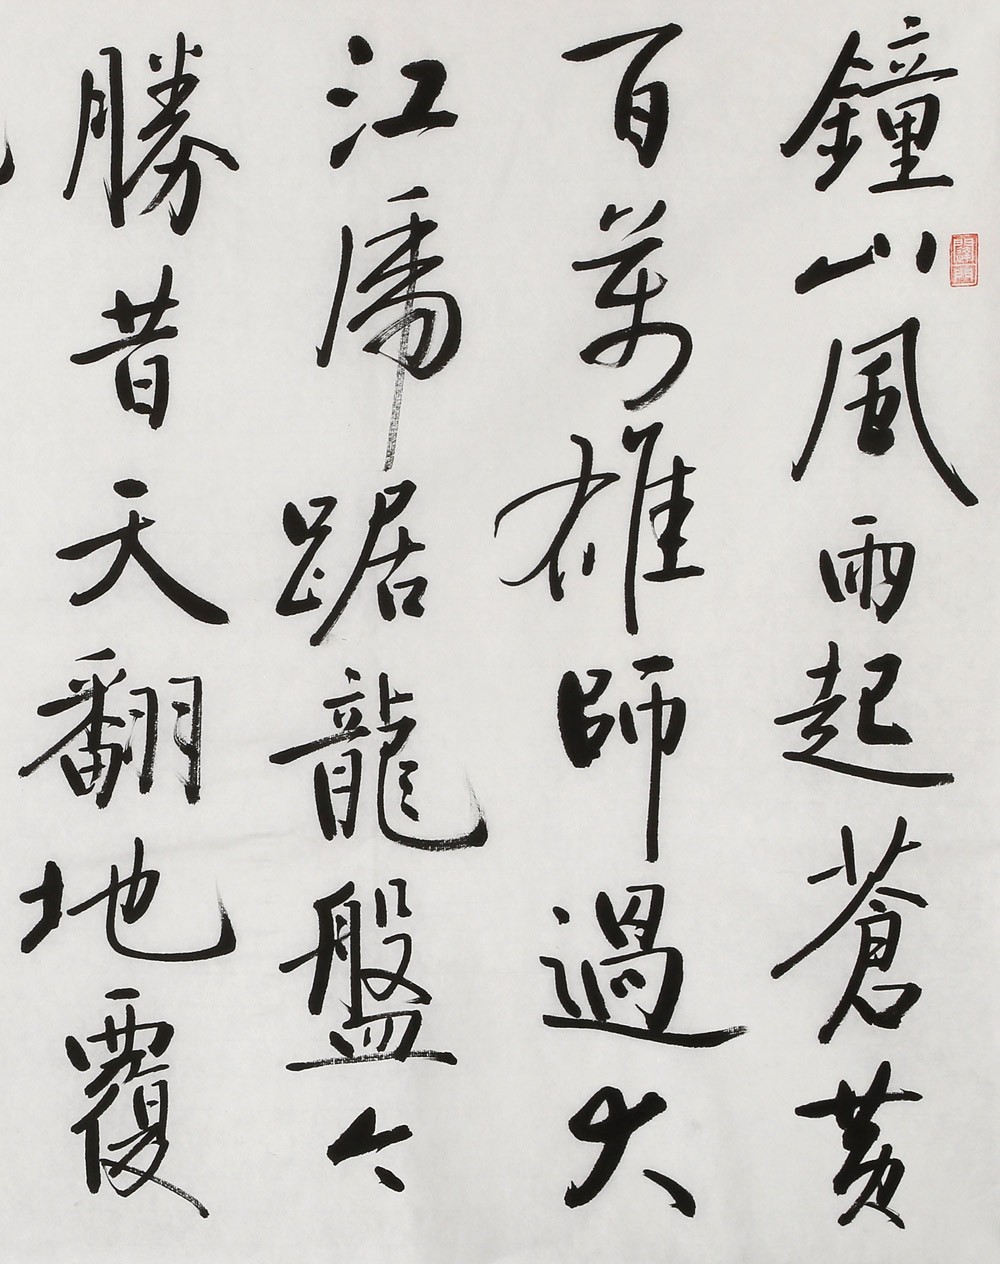 鐘山風雨起蒼黄
百萬雄師過大
江虎踞龍盤今
勝昔天翻地覆